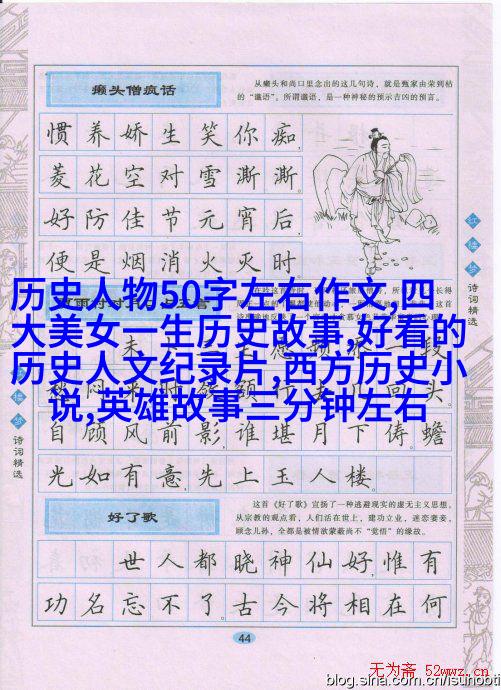 癞头僧疯话
从癞头和尚口里念出的这几句诗，就是甄家由荣到枯
的“谶语”。所谓谶语，是一种神秘的预示吉凶的预言。
惯养娇生笑你痴，
菱花空对雪澌澌。
好防佳节元宵后，
便是烟消火灭时。
历史人物50字左右作文,四
大美女一生历史故事,好看的
历史人文纪录片,西方历史小
说,英雄故事三分钟左右
自顾风前影，谁堪月下俦。蟾
光如有意，先上玉人楼。
好了歌
这首《好了歌》宣扬了一种逃避现实的虚无主义思想。
从宗教的观点看，人们活在世上，建功立业，迷恋妻妾，
顾念儿孙，全都是被情欲蒙蔽尚不“觉悟”的缘故。
世人都晓神仙好，惟有
功名忘不了！古今将相在何
44
红楼梦
诗词精选
红楼梦
诗词精选
无为斋 52wwz.cn
blog.sina.com.cn/isunobti